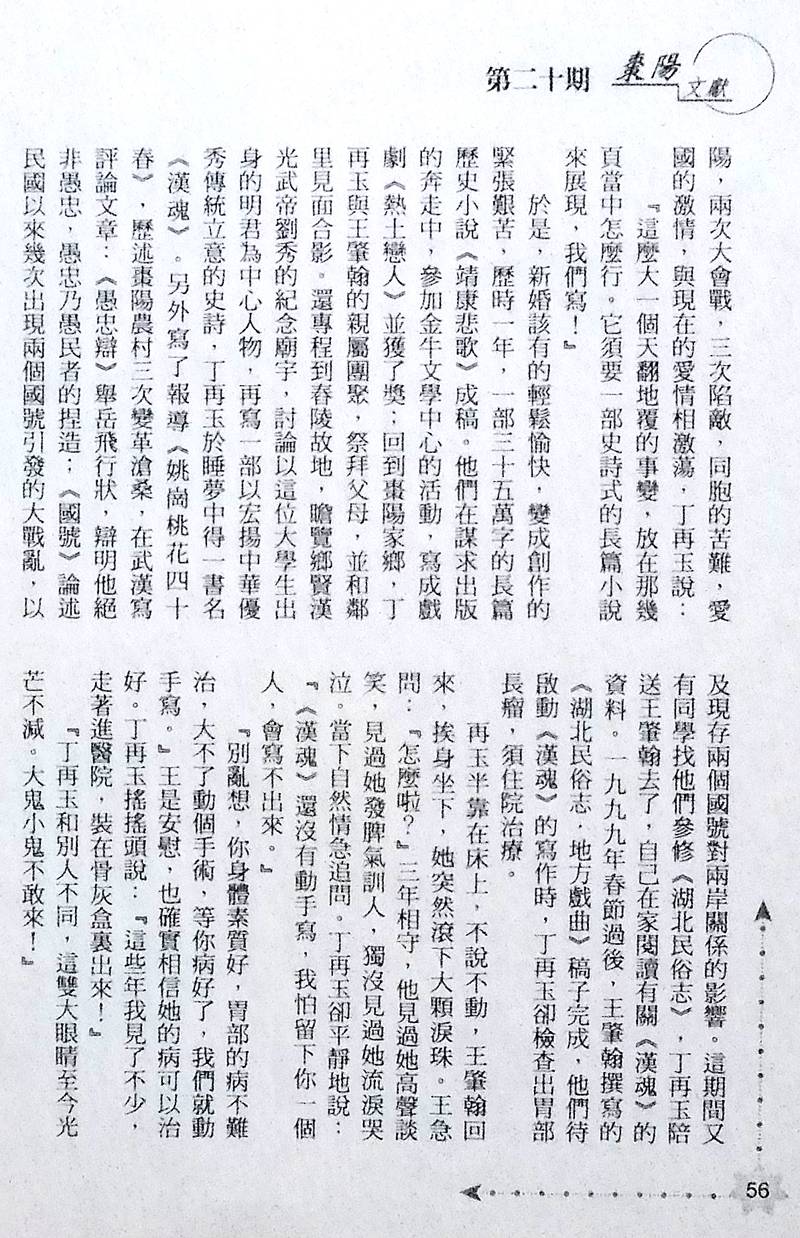 第二十期 棗陽文獻
陽，兩次大會戰，三次陷敵，同胞的苦難，愛
國的激情，與現在的愛情相激蕩，丁再玉說：
『這麼大一個天翻地覆的事變，放在那幾
頁當中怎麼行。它須要一部史詩式的長篇小說
來展現，我們寫！』
於是，新婚該有的輕鬆愉快，變成創作的
緊張艱苦，歷時一年，一部三十五萬字的長篇
歷史小說《靖康悲歌》成稿。他們在謀求出版
的奔走中，參加金牛文學中心的活動，寫成戲
劇《熱土戀人》並獲了獎；回到棗陽家鄉，丁
再玉與王肇翰的親屬團聚，祭拜父母，並和鄰
里見面合影。還專程到舂陵故地，瞻覽鄉賢漢
光武帝劉秀的紀念廟宇，討論以這位大學生出
身的明君為中心人物，再寫一部以宏揚中華優
秀傳統立意的史詩，丁再玉於睡夢中得一書名
《漢魂》。另外寫了報導《姚崗桃花四十
春》，歷述棗陽農村三次變革滄桑，在武漢寫
評論文章：《愚忠辯》舉岳飛行狀，辯明他絕
非愚忠，愚忠乃愚民者的捏造；《國號》論述
民國以來幾次出現兩個國號引發的大戰亂，以
及現存兩個國號對兩岸關係的影響。這期間又
有同學找他們參修《湖北民俗志》，丁再玉陪
送王肇翰去了，自己在家閱讀有關《漢魂》的
資料。一九九九年春節過後，王肇翰撰寫的
《湖北民俗志．地方戲曲》稿子完成，他們待
啟動《漢魂》的寫作時，丁再玉卻檢查出胃部
長瘤，須住院治療。
再玉半靠在床上，不說不動，王肇翰回
來，挨身坐下，她突然滾下大顆淚珠。王急
問：『怎麼啦？』三年相守，他見過她高聲談
笑，見過她發脾氣訓人，獨沒見過她流淚哭
泣。當下自然情急追問。丁再玉卻平靜地說：
『《漢魂》還沒有動手寫，我怕留下你一個
人，會寫不出來。』
『別亂想，你身體素質好，胃部的病不難
治，大不了動個手術，等你病好了，我們就動
手寫。』王是安慰，也確實相信她的病可以治
好。丁再玉搖搖頭說：『這些年我見了不少，
走著進醫院，裝在骨灰盒裏出來！』
『丁再玉和別人不同，這雙大眼睛至今光
芒不減。大鬼小鬼不敢來！』
56